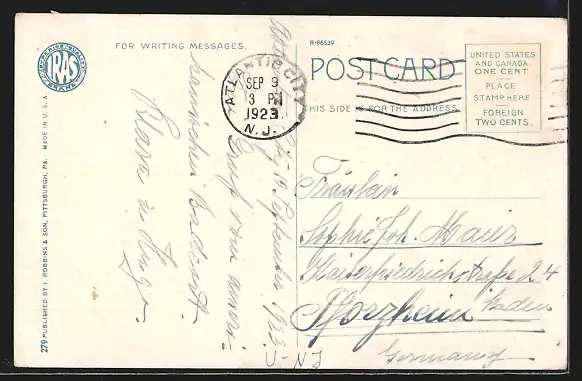 FOR WRITING MESSAGES.
R-86539
POST CARD
THIS SIDE IS FOR THE ADDRESS
UNITED STATES
AND CANADA
ONE CENT
PLACE
STAMP HERE
FOREIGN
TWO CENTS
ATLANTIC CITY
SEP 9
3 PM
1923
N. J.
IRAS
279 PUBLISHED BY I. ROBBINS & SON, PITTSBURGH, PA. MADE IN U.S.A.
City 10 September 1923
Gruß vom ameri-
kanischen Badeort.
Klara u Hugo.
Fräulein
Sophie Joh. Maier
Kaiserfriedrichstraße 24
Pforzheim Baden
Germany
U-NJ